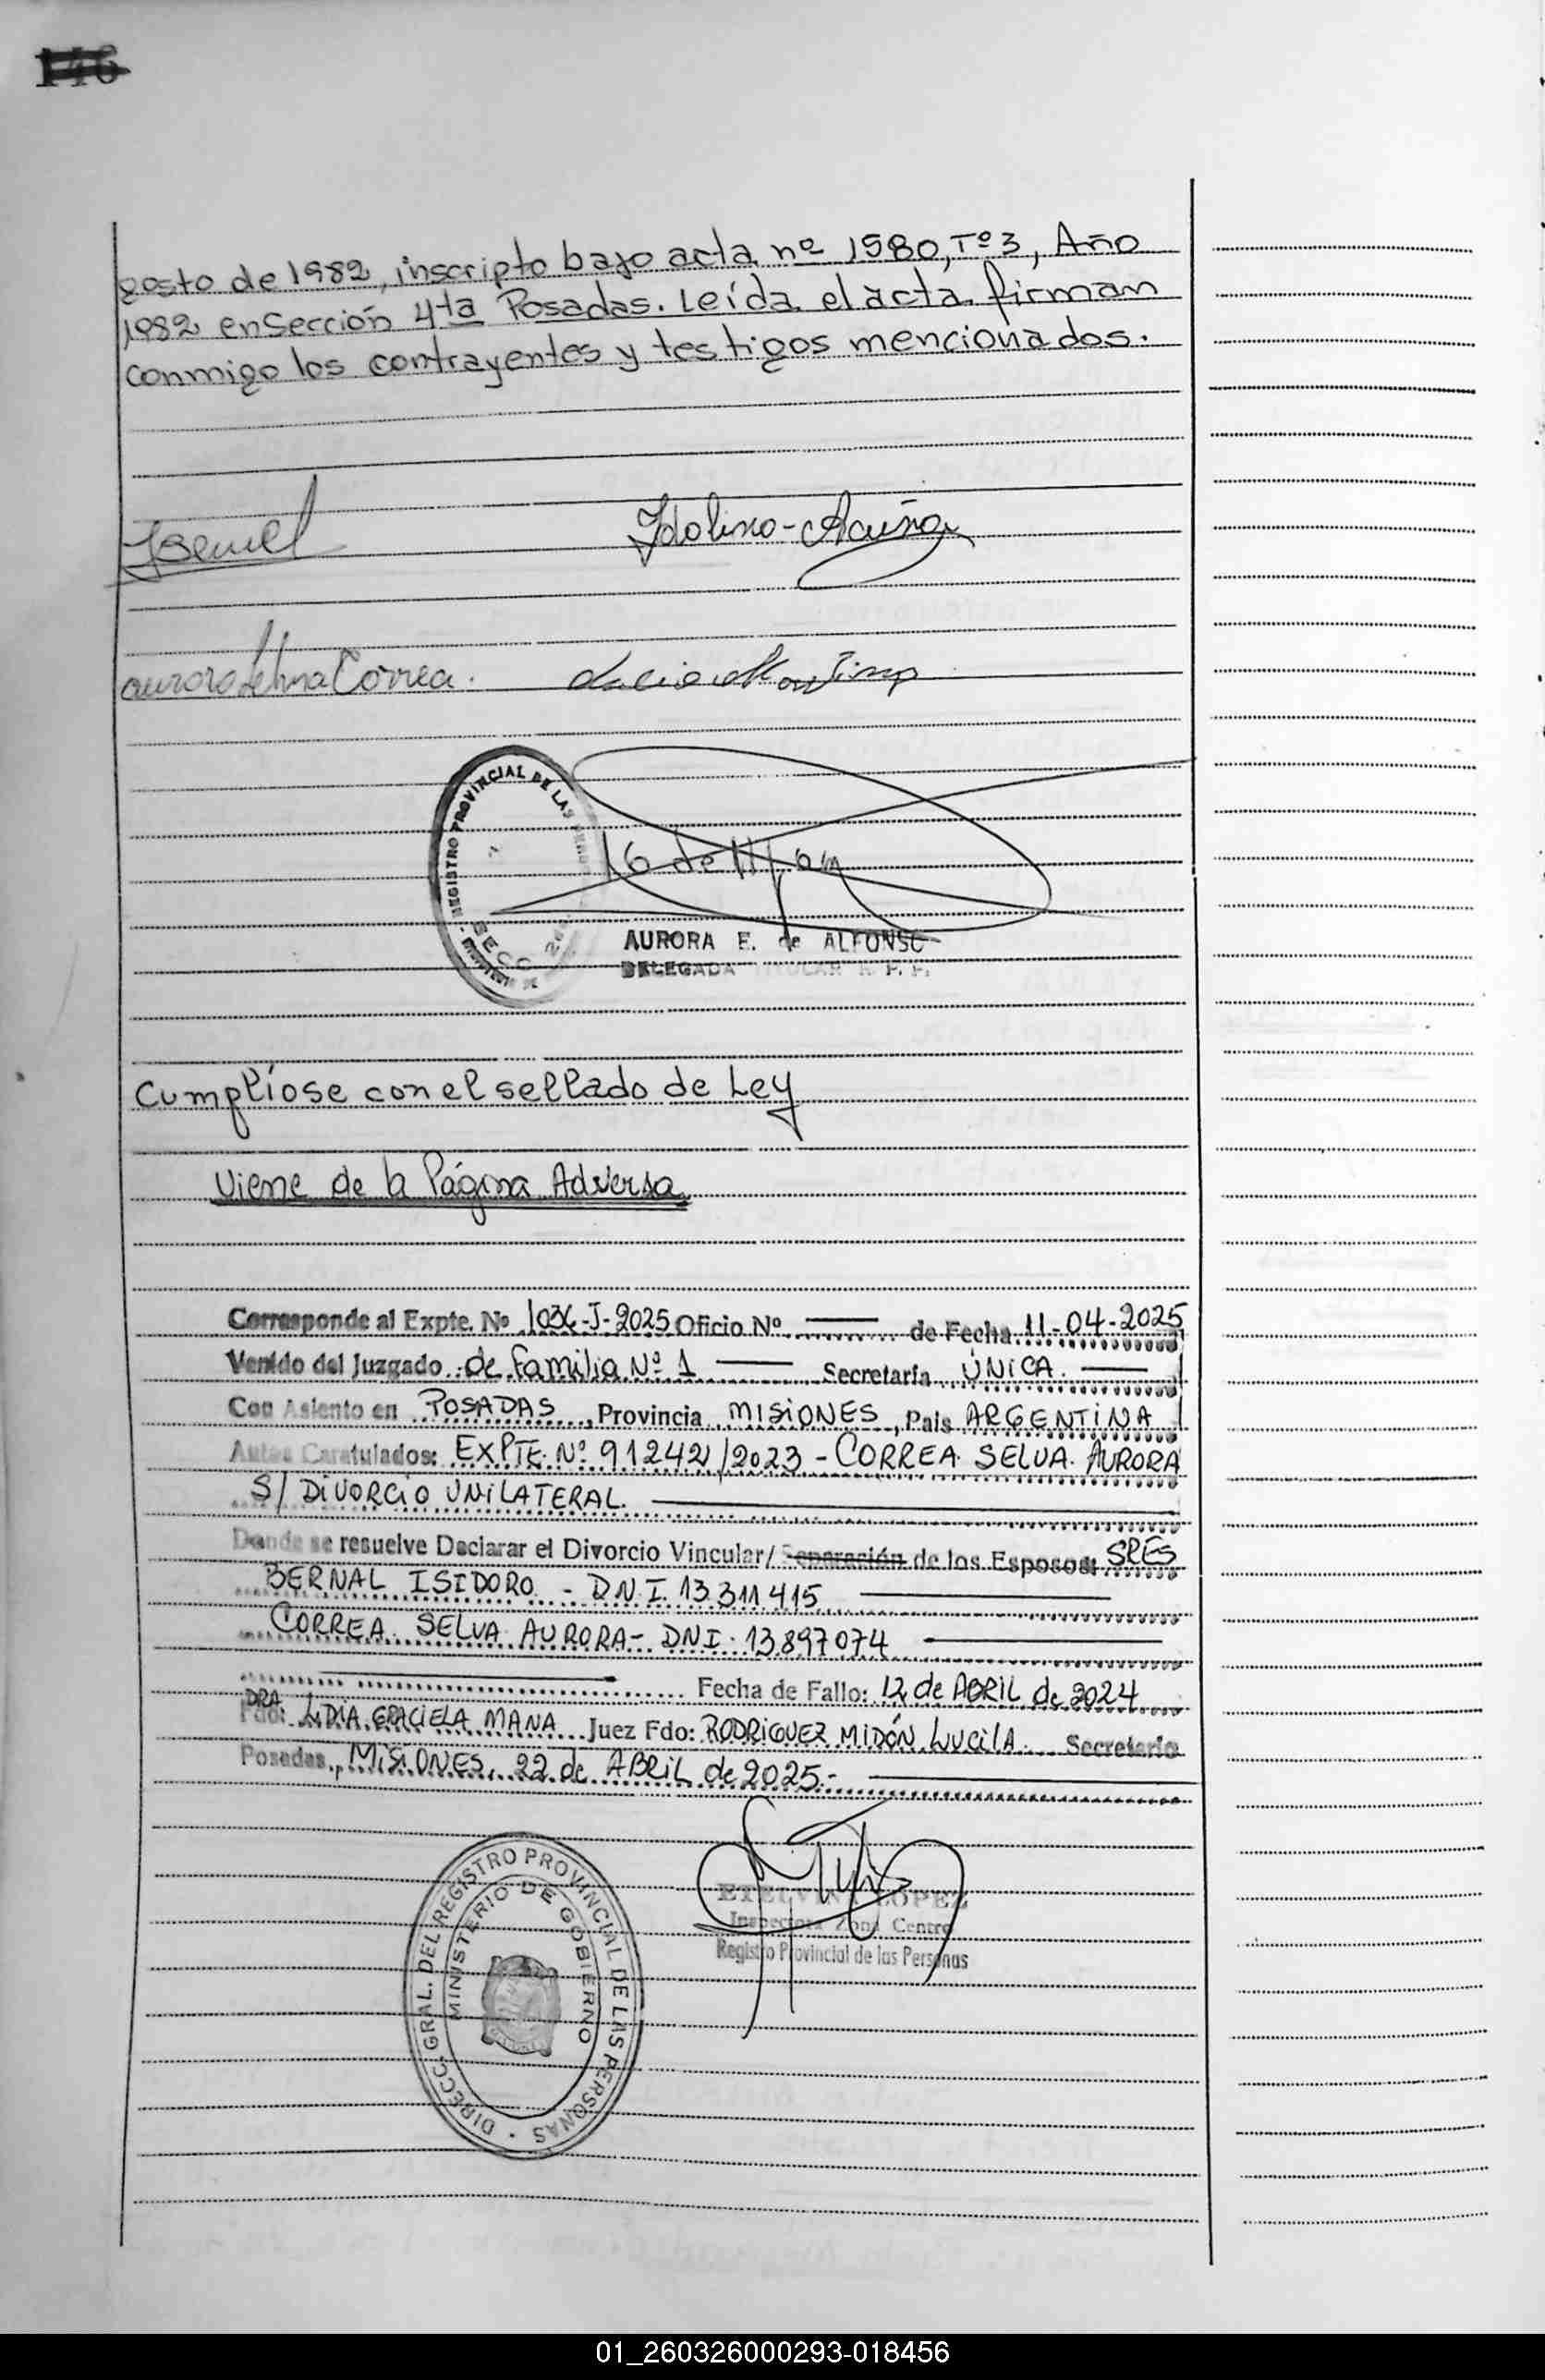 146
gosto de 1982, inscripto bajo acta nº 1580, Tº 3, Año
1982 en Sección 4ta Posadas. Leída el acta firman
conmigo los contrayentes y testigos mencionados.
Idolino - Acuña
Aurora Selva Correa.
REGISTRO PROVINCIAL DE LAS
SECC
AURORA E. de ALFONSO
DELEGADA TITULAR R. P. P.
Cumplíose con el sellado de Ley
Viene de la Página Adversa
Corresponde al Expte. Nº 1036-J-2025 Oficio Nº de Fecha 11-04-2025
Venido del Juzgado de Familia Nº 1 Secretaría ÚNICA.
Con Asiento en POSADAS, Provincia MISIONES, País ARGENTINA
Autos Caratulados: EXPTE Nº 91242/2023 - CORREA SELVA AURORA
S/ DIVORCIO UNILATERAL.
Donde se resuelve Declarar el Divorcio Vincular/ Separación de los Esposos: SRES
BERNAL ISIDORO - DNI. 13.311.415
CORREA SELVA AURORA - DNI. 13.897.074
Fecha de Fallo: 12 de ABRIL de 2024
Fdo: DRA. LIDIA GRACIELA MANA Juez Fdo: RODRIGUEZ MIDÓN LUCILA Secretario
Posadas, MISIONES, 22 de ABRIL de 2025.-
DIRECC. GRAL. DEL REGISTRO PROVINCIAL DE LAS PERSONAS
MINISTERIO DE GOBIERNO
ETELVINA LOPEZ
Inspectora Zona Centro
Registro Provincial de las Personas
01_260326000293-018456